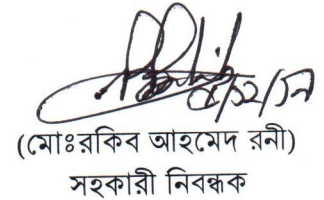 (মোঃরকিব আহমেদ রনী)
সহকারী নিবন্ধক